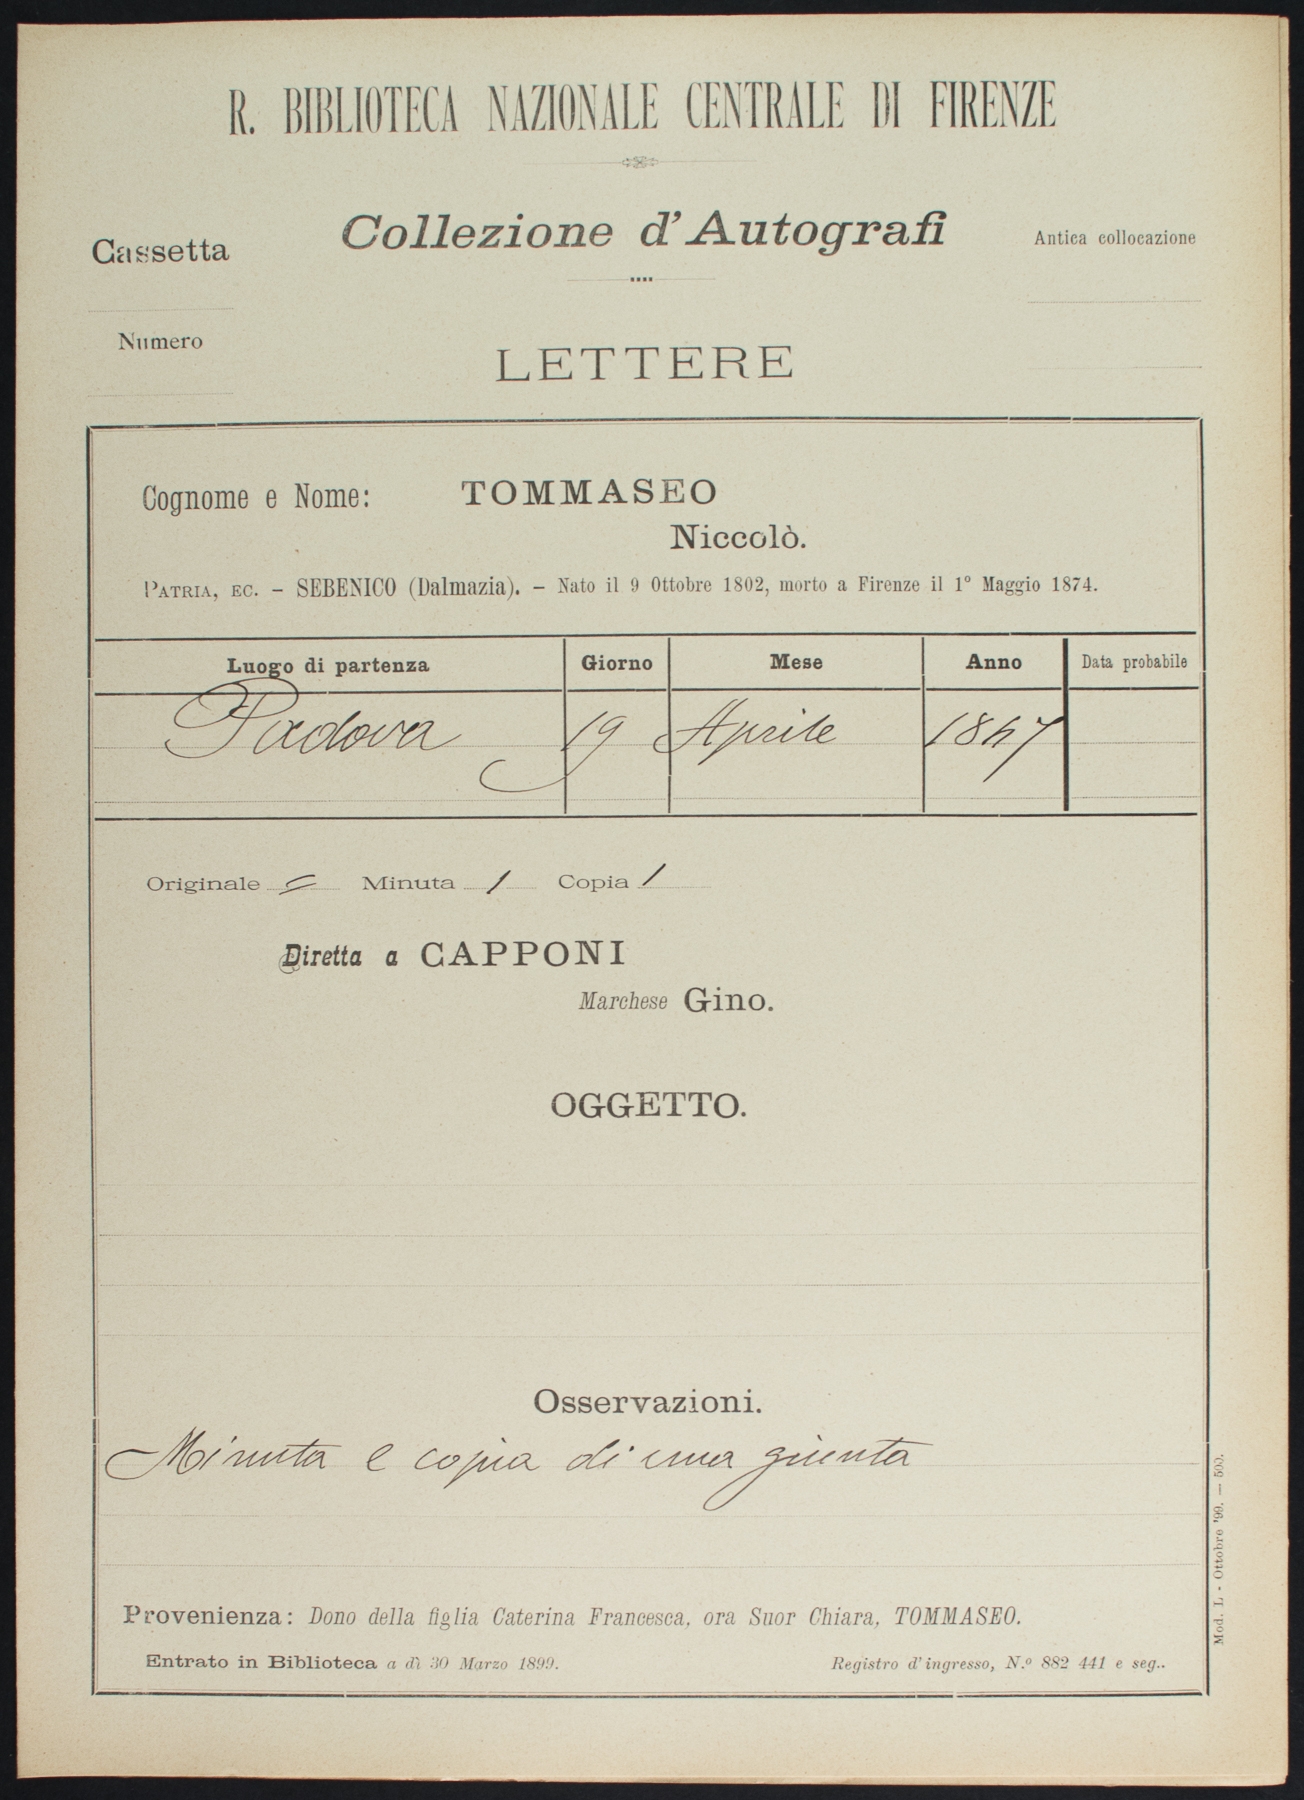 R. BIBLIOTECA NAZIONALE CENTRALE DI FIRENZE
Collezione d'Autografi
Cassetta
Antica collocazione
Numero
LETTERE
Cognome e Nome: TOMMASEO
Niccolò.
PATRIA, EC. – SEBENICO (Dalmazia). – Nato il 9 Ottobre 1802, morto a Firenze il 1º Maggio 1874.
Luogo di partenza Giorno Mese Anno Data probabile
Padova 19 Aprile 1847
Originale = Minuta 1 Copia 1
Diretta a CAPPONI
Marchese Gino.
OGGETTO.
Osservazioni.
Minuta e copia di una giunta
Provenienza: Dono della figlia Caterina Francesca, ora Suor Chiara, TOMMASEO.
Entrato in Biblioteca a dì 30 Marzo 1899. Registro d'ingresso, N.º 882 441 e seg..
Mod. L - Ottobre '99. — 500.